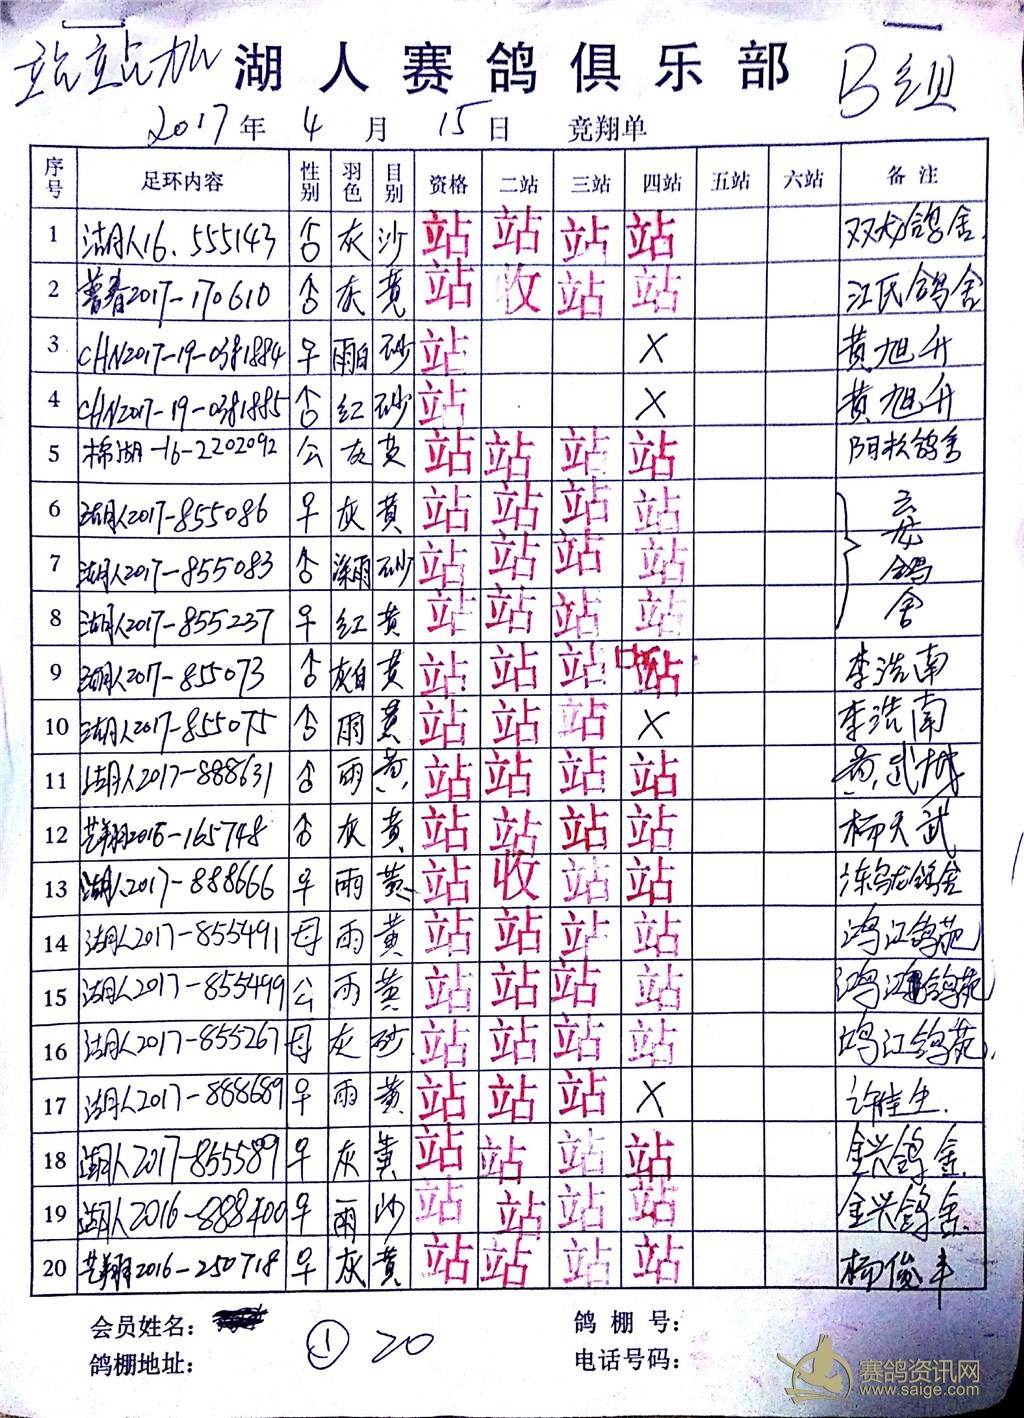 站站加 湖人赛鸽俱乐部 B组
2017年 4月 15日 竞翔单
序号 足环内容 性别 羽色 目别 资格 二站 三站 四站 五站 六站 备注
1 湖人16.555143 ♂ 灰 沙 站 站 站 站 双龙鸽舍.
2 普春2017-170610 ♂ 灰 黄 站 收 站 站 江氏鸽舍
3 CHN2017-19-0381884 ♀ 雨白 砂 站 × 黄旭升
4 CHN2017-19-0381885 ♂ 红 砂 站 × 黄旭升
5 棉湖-16-2202092 公 灰 黄 站 站 站 站 鸽舍
6 湖人2017-855086 ♀ 灰 黄 站 站 站 站 云龙鸽舍
7 湖人2017-855083 ♂ 深雨 砂 站 站 站 站
8 湖人2017-855237 ♀ 红 黄 站 站 站 站
9 湖人2017-855073 ♂ 灰白 黄 站 站 站 站 李浩南
10 湖人2017-855075 ♂ 雨 黄 站 站 站 × 李浩南
11 湖人2017-888631 ♂ 雨 黄 站 站 站 站 黄武城
12 艺翔2016-165748 ♂ 灰 黄 站 站 站 站 杨天武
13 湖人2017-888666 ♀ 雨 黄 站 收 站 站 乌龙鸽舍
14 湖人2017-855491 母 雨 黄 站 站 站 站 鸿江鸽苑
15 湖人2017-855499 公 雨 黄 站 站 站 站 鸿江鸽苑
16 湖人2017-855267 母 灰 砂 站 站 站 站 鸿江鸽苑.
17 湖人2017-888689 ♀ 雨 黄 站 站 站 × 许佳生.
18 湖人2017-855589 ♀ 灰 黄 站 站 站 站 金兴鸽舍.
19 湖人2016-888400 ♀ 雨 沙 站 站 站 站 金兴鸽舍.
20 艺翔2016-250718 ♀ 灰 黄 站 站 站 站 杨俊丰
会员姓名： 鸽棚号：
鸽棚地址： ① 20 电话号码：
赛鸽资讯网
www.saige.com